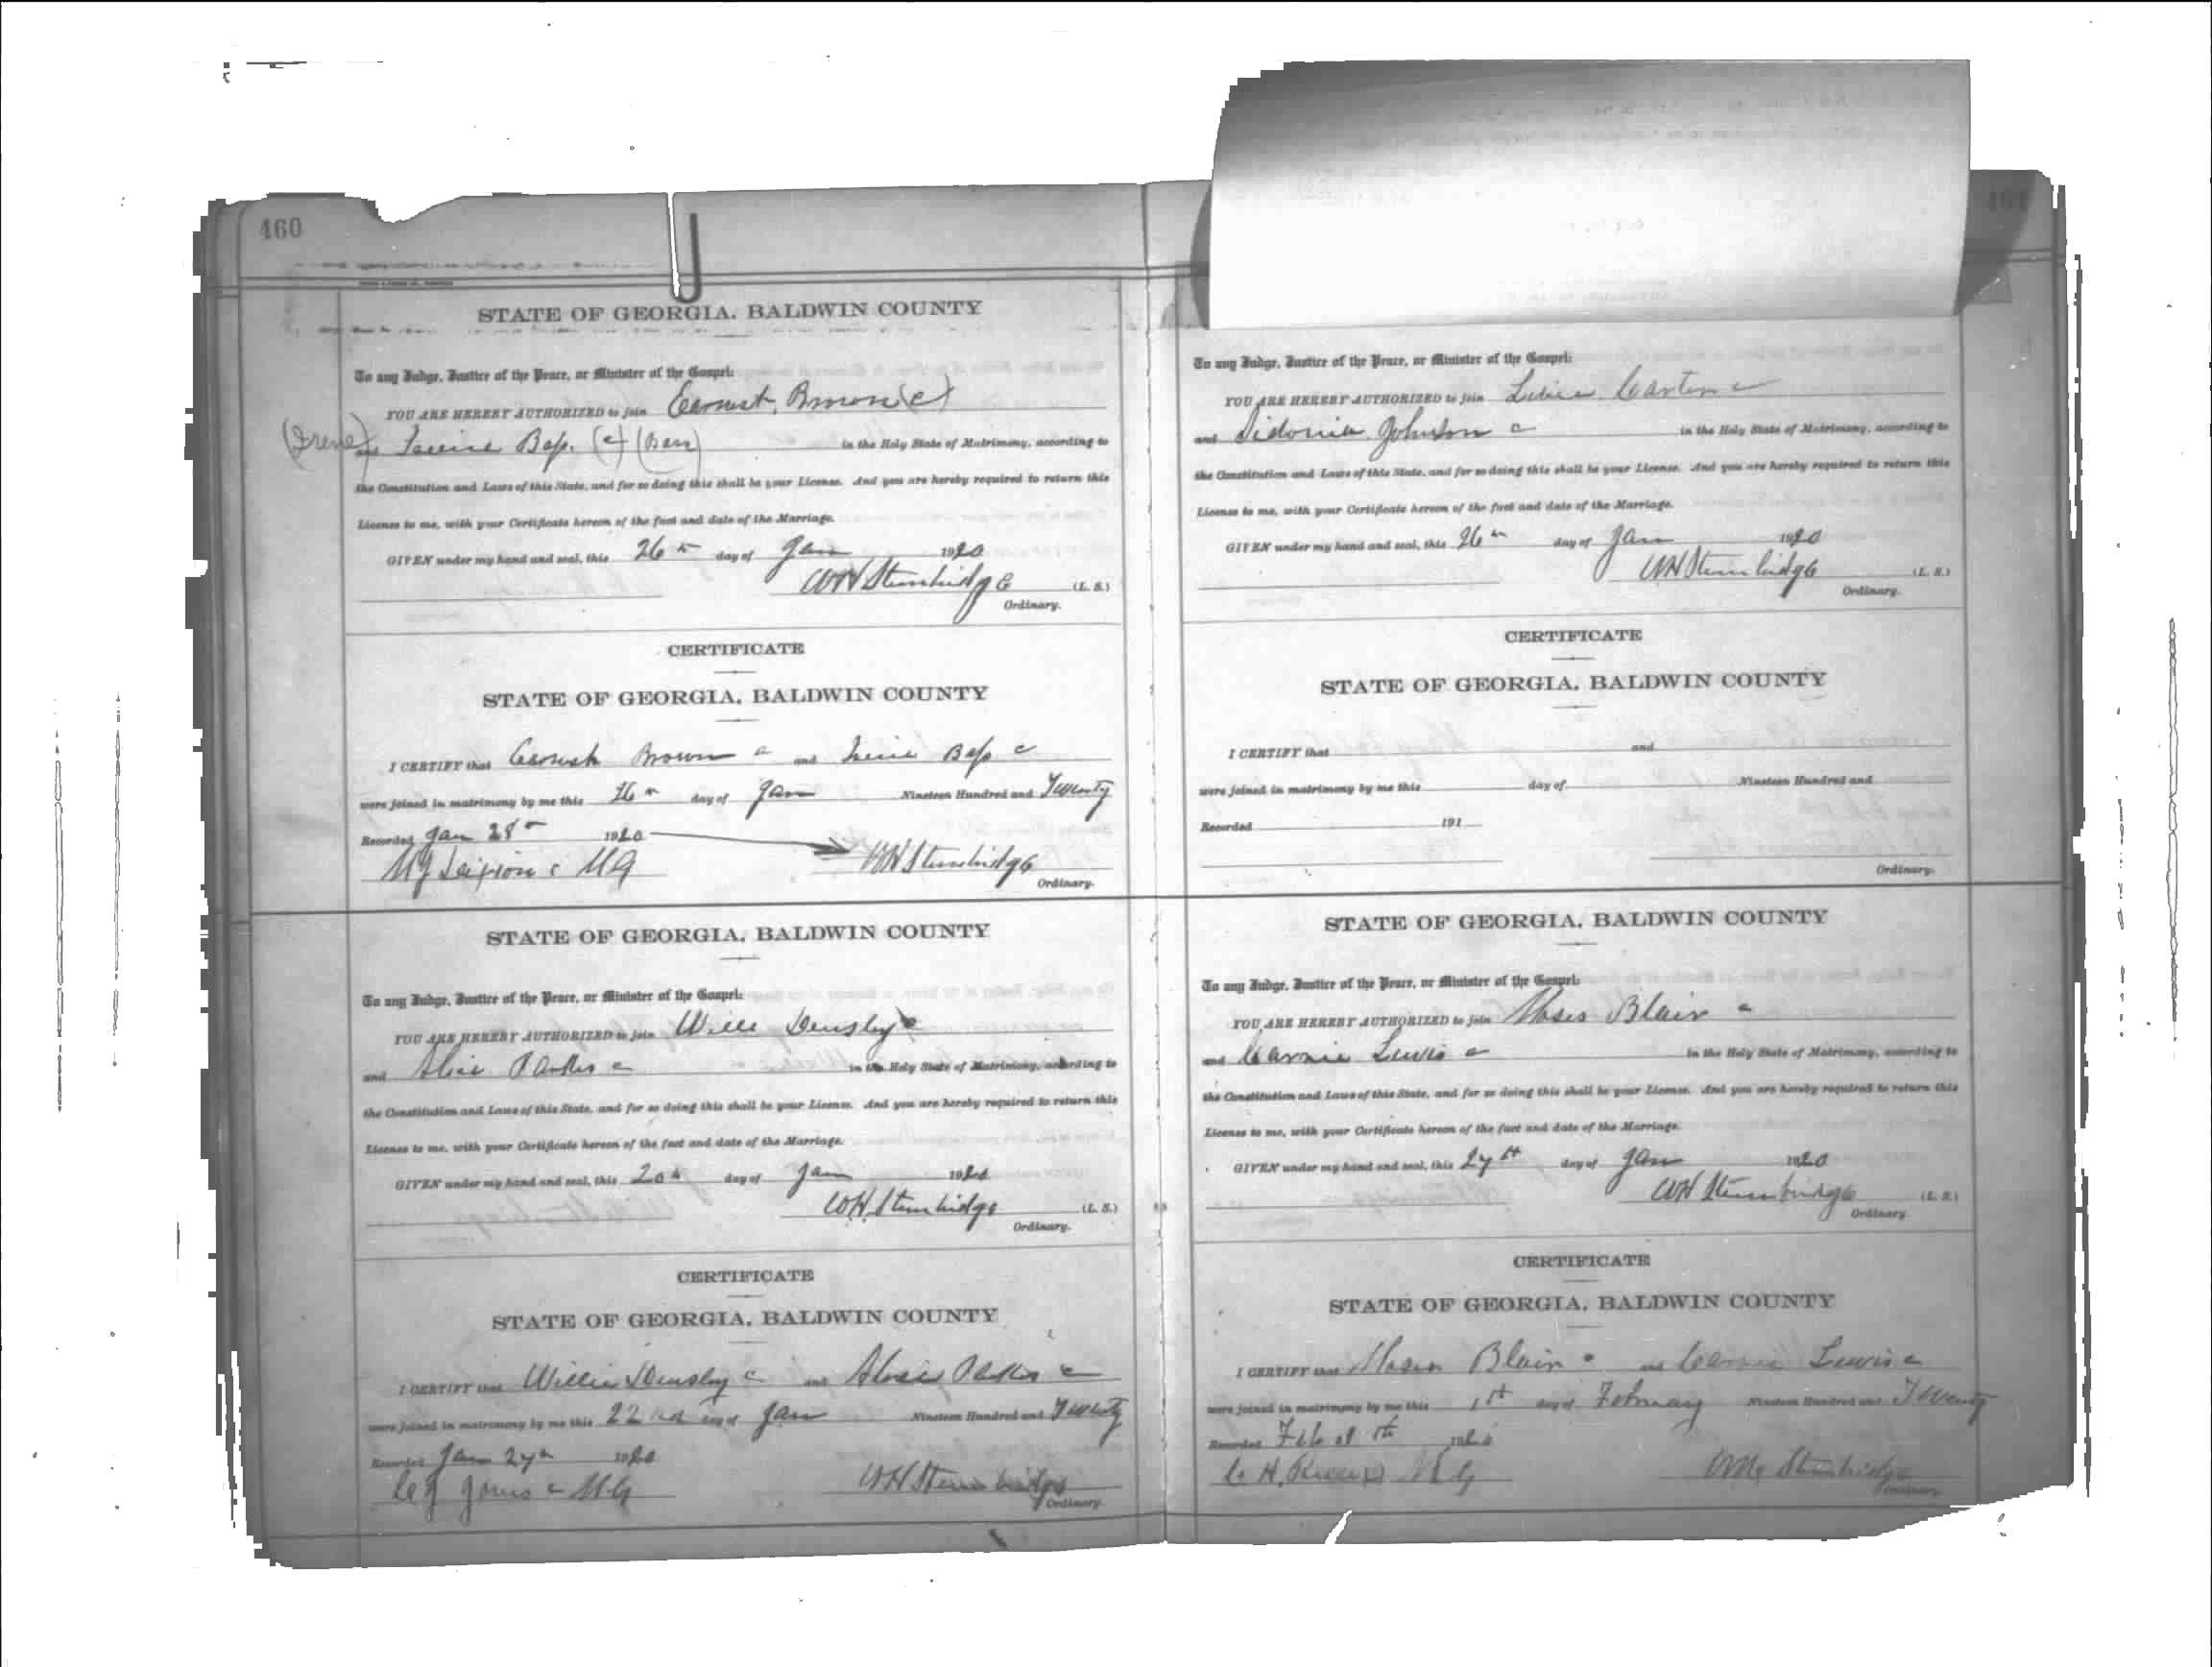 460
STATE OF GEORGIA. BALDWIN COUNTY
To any Judge, Justice of the Peace, or Minister of the Gospel:
YOU ARE HEREBY AUTHORIZED to join Earnest Brown (c)
(Irene) Bass. (c) (Bass) in the Holy State of Matrimony, according to
the Constitution and Laws of this State, and for so doing this shall be your License. And you are hereby required to return this
License to me, with your Certificate hereon of the fact and date of the Marriage.
GIVEN under my hand and seal, this 26th day of Jan 1920
WH Stembridge (L. S.)
Ordinary.
CERTIFICATE
STATE OF GEORGIA. BALDWIN COUNTY
I CERTIFY that Earnest Brown c and Irene Bass c
were joined in matrimony by me this 26th day of Jan Nineteen Hundred and Twenty
Recorded Jan 28th 1920
MG WH Stembridge
Ordinary.
STATE OF GEORGIA. BALDWIN COUNTY
To any Judge, Justice of the Peace, or Minister of the Gospel:
YOU ARE HEREBY AUTHORIZED to join Willie Densley c
and Alice Parker c in the Holy State of Matrimony, according to
the Constitution and Laws of this State, and for so doing this shall be your License. And you are hereby required to return this
License to me, with your Certificate hereon of the fact and date of the Marriage.
GIVEN under my hand and seal, this 20th day of Jan 1920
W.H. Stembridge (L. S.)
Ordinary.
CERTIFICATE
STATE OF GEORGIA. BALDWIN COUNTY
I CERTIFY that Willie Densley c and Alice Parker c
were joined in matrimony by me this 22nd day of Jan Nineteen Hundred and Twenty
Recorded Jan 27th 1920
Jones c M.G WH Stembridge
Ordinary.
To any Judge, Justice of the Peace, or Minister of the Gospel:
YOU ARE HEREBY AUTHORIZED to join Carter c
and Sidonia Johnson c in the Holy State of Matrimony, according to
the Constitution and Laws of this State, and for so doing this shall be your License. And you are hereby required to return this
License to me, with your Certificate hereon of the fact and date of the Marriage.
GIVEN under my hand and seal, this 26th day of Jan 1920
WH Stembridge (L. S.)
Ordinary.
CERTIFICATE
STATE OF GEORGIA. BALDWIN COUNTY
I CERTIFY that and
were joined in matrimony by me this day of Nineteen Hundred and
Recorded 191
Ordinary.
STATE OF GEORGIA. BALDWIN COUNTY
To any Judge, Justice of the Peace, or Minister of the Gospel:
YOU ARE HEREBY AUTHORIZED to join Moses Blair c
and Carrie Lewis c in the Holy State of Matrimony, according to
the Constitution and Laws of this State, and for so doing this shall be your License. And you are hereby required to return this
License to me, with your Certificate hereon of the fact and date of the Marriage.
GIVEN under my hand and seal, this 27th day of Jan 1920
WH Stembridge (L. S.)
Ordinary
CERTIFICATE
STATE OF GEORGIA. BALDWIN COUNTY
I CERTIFY that Moses Blair c and Carrie Lewis c
were joined in matrimony by me this 1st day of February Nineteen Hundred and Twenty
Recorded Feb
C H. MG Stembridge
Ordinary